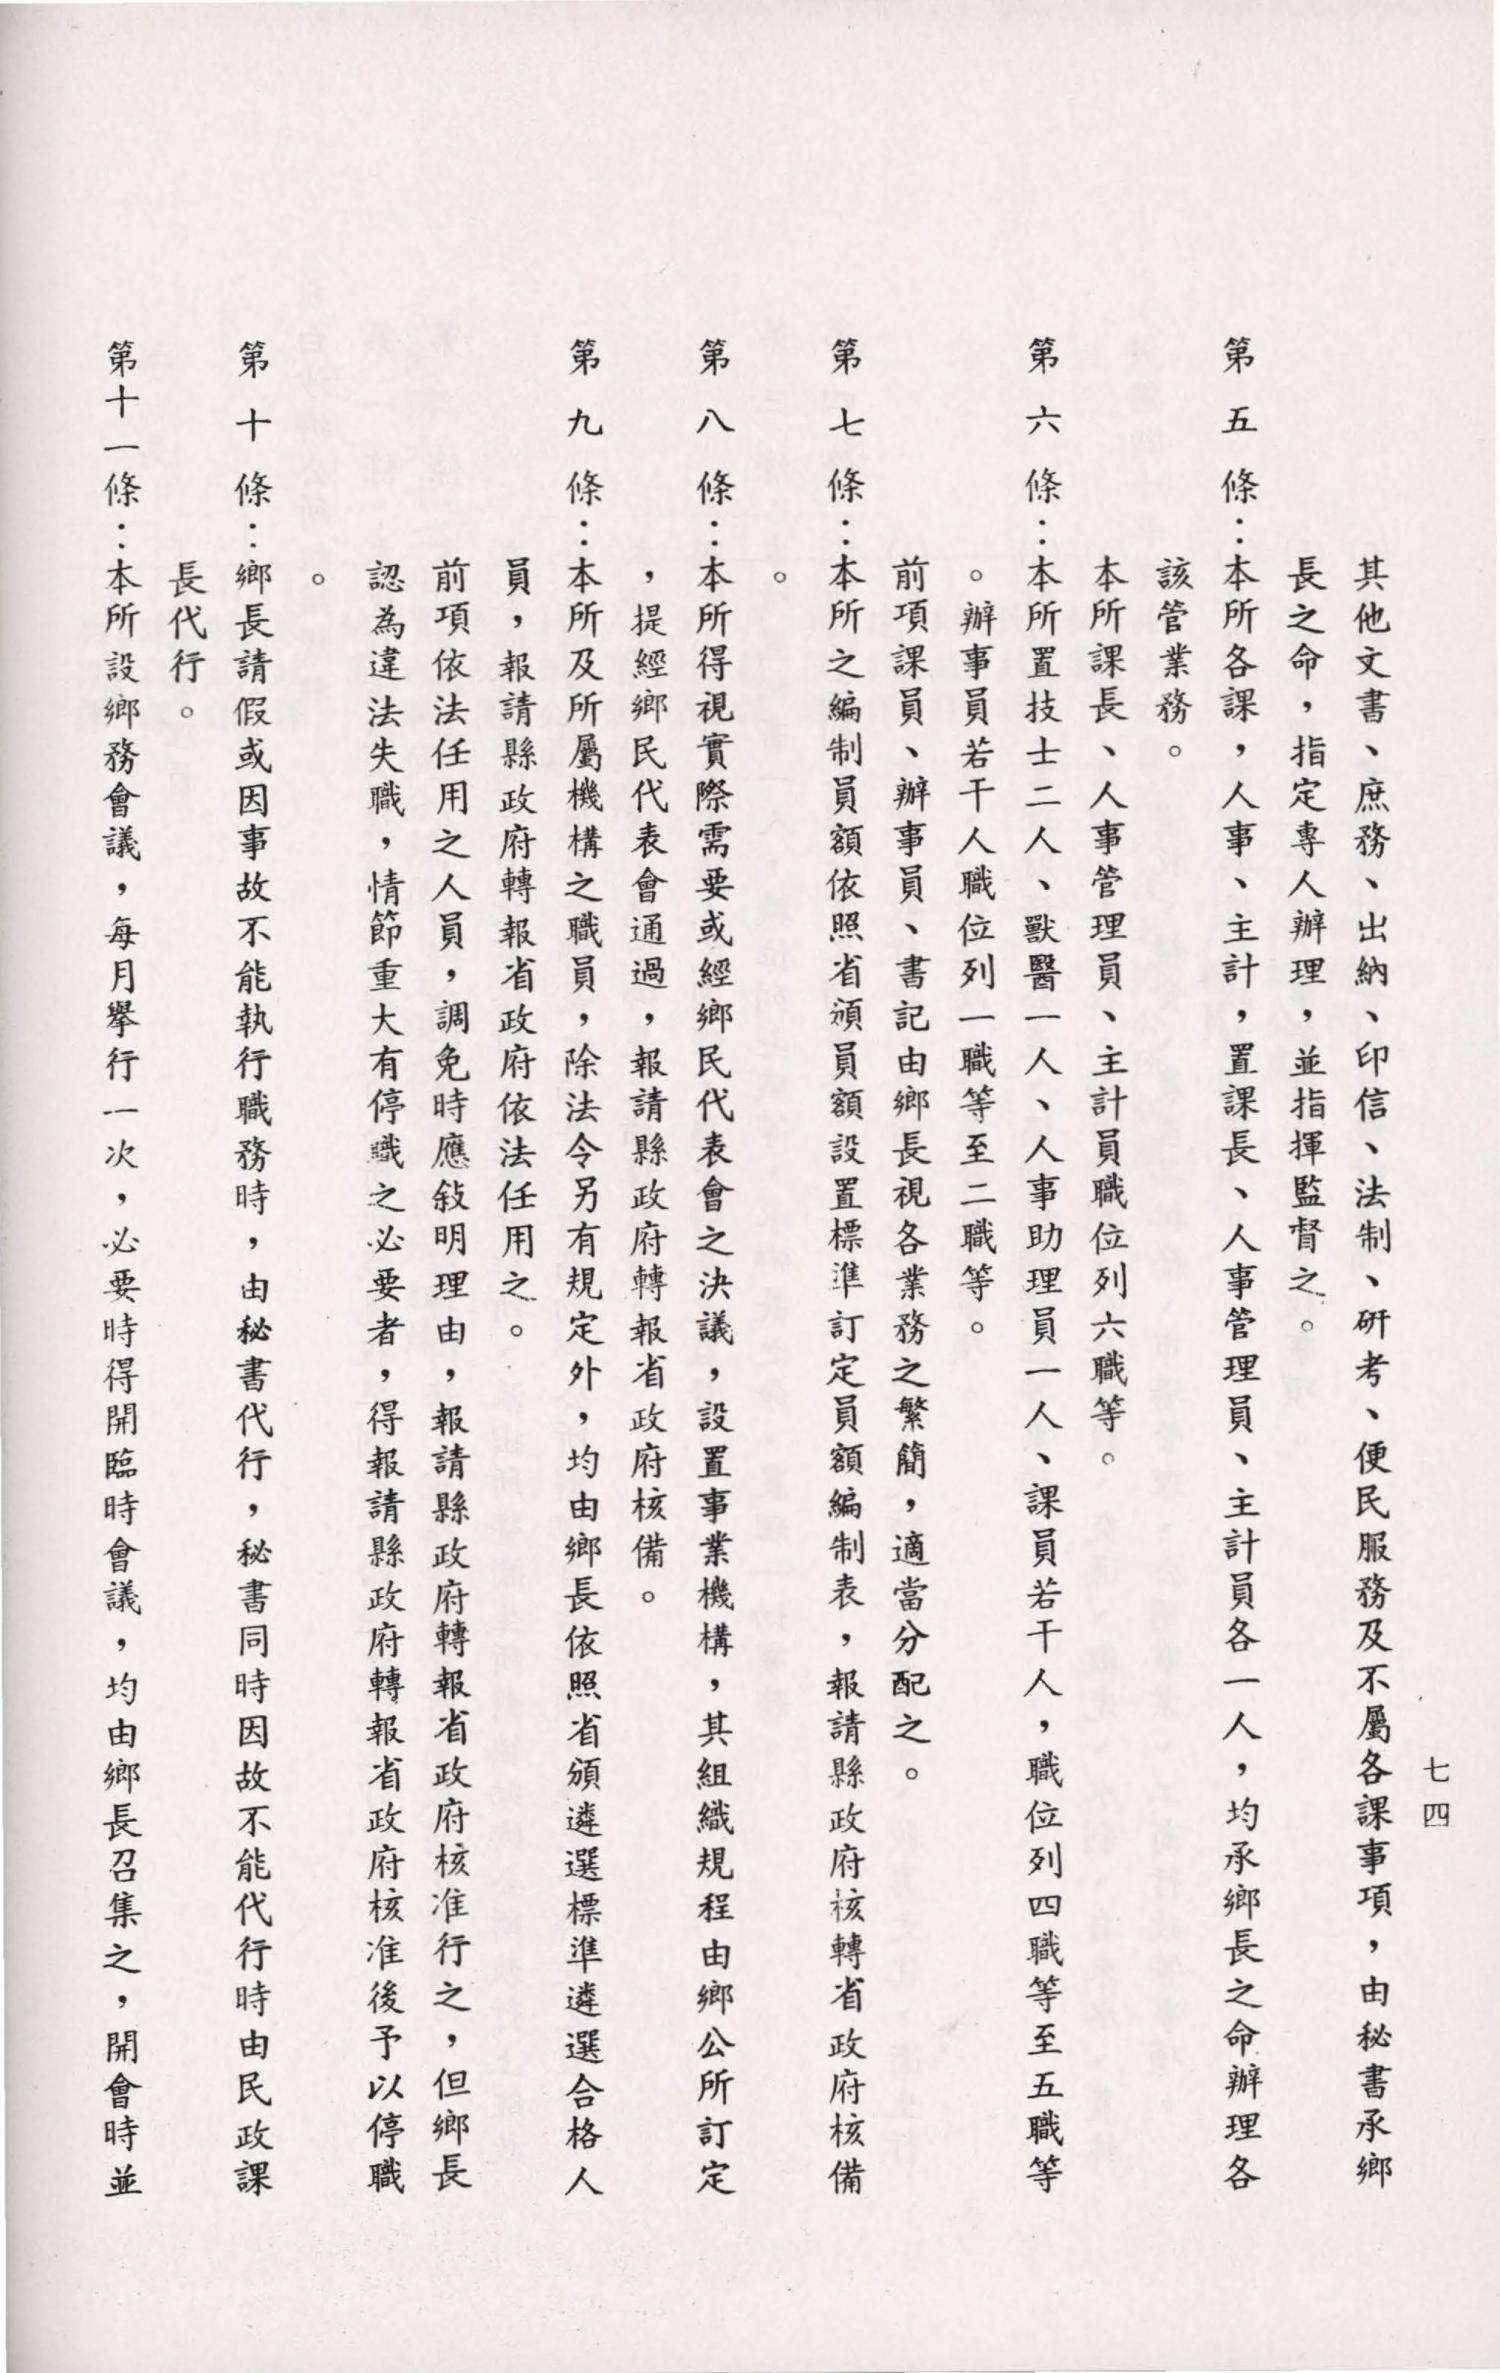 七四
其他文書、庶務、出納、印信、法制、研考、便民服務及不屬各課事項，由秘書承鄉
長之命，指定專人辦理，並指揮監督之。
第五條：本所各課，人事、主計，置課長、人事管理員、主計員各一人，均承鄉長之命辦理各
該管業務。
本所課長、人事管理員、主計員職位列六職等。
第六條：本所置技士二人、獸醫一人、人事助理員一人、課員若干人，職位列四職等至五職等
。辦事員若干人職位列一職等至二職等。
前項課員、辦事員、書記由鄉長視各業務之繁簡，適當分配之。
第七條：本所之編制員額依照省頒員額設置標準訂定員額編制表，報請縣政府核轉省政府核備
。
第八條：本所得視實際需要或經鄉民代表會之決議，設置事業機構，其組織規程由鄉公所訂定
，提經鄉民代表會通過，報請縣政府轉報省政府核備。
第九條：本所及所屬機構之職員，除法令另有規定外，均由鄉長依照省頒遴選標準遴選合格人
員，報請縣政府轉報省政府依法任用之。
前項依法任用之人員，調免時應敍明理由，報請縣政府轉報省政府核准行之，但鄉長
認為違法失職，情節重大有停職之必要者，得報請縣政府轉報省政府核准後予以停職
。
第十條：鄉長請假或因事故不能執行職務時，由秘書代行，秘書同時因故不能代行時由民政課
長代行。
第十一條：本所設鄉務會議，每月舉行一次，必要時得開臨時會議，均由鄉長召集之，開會時並